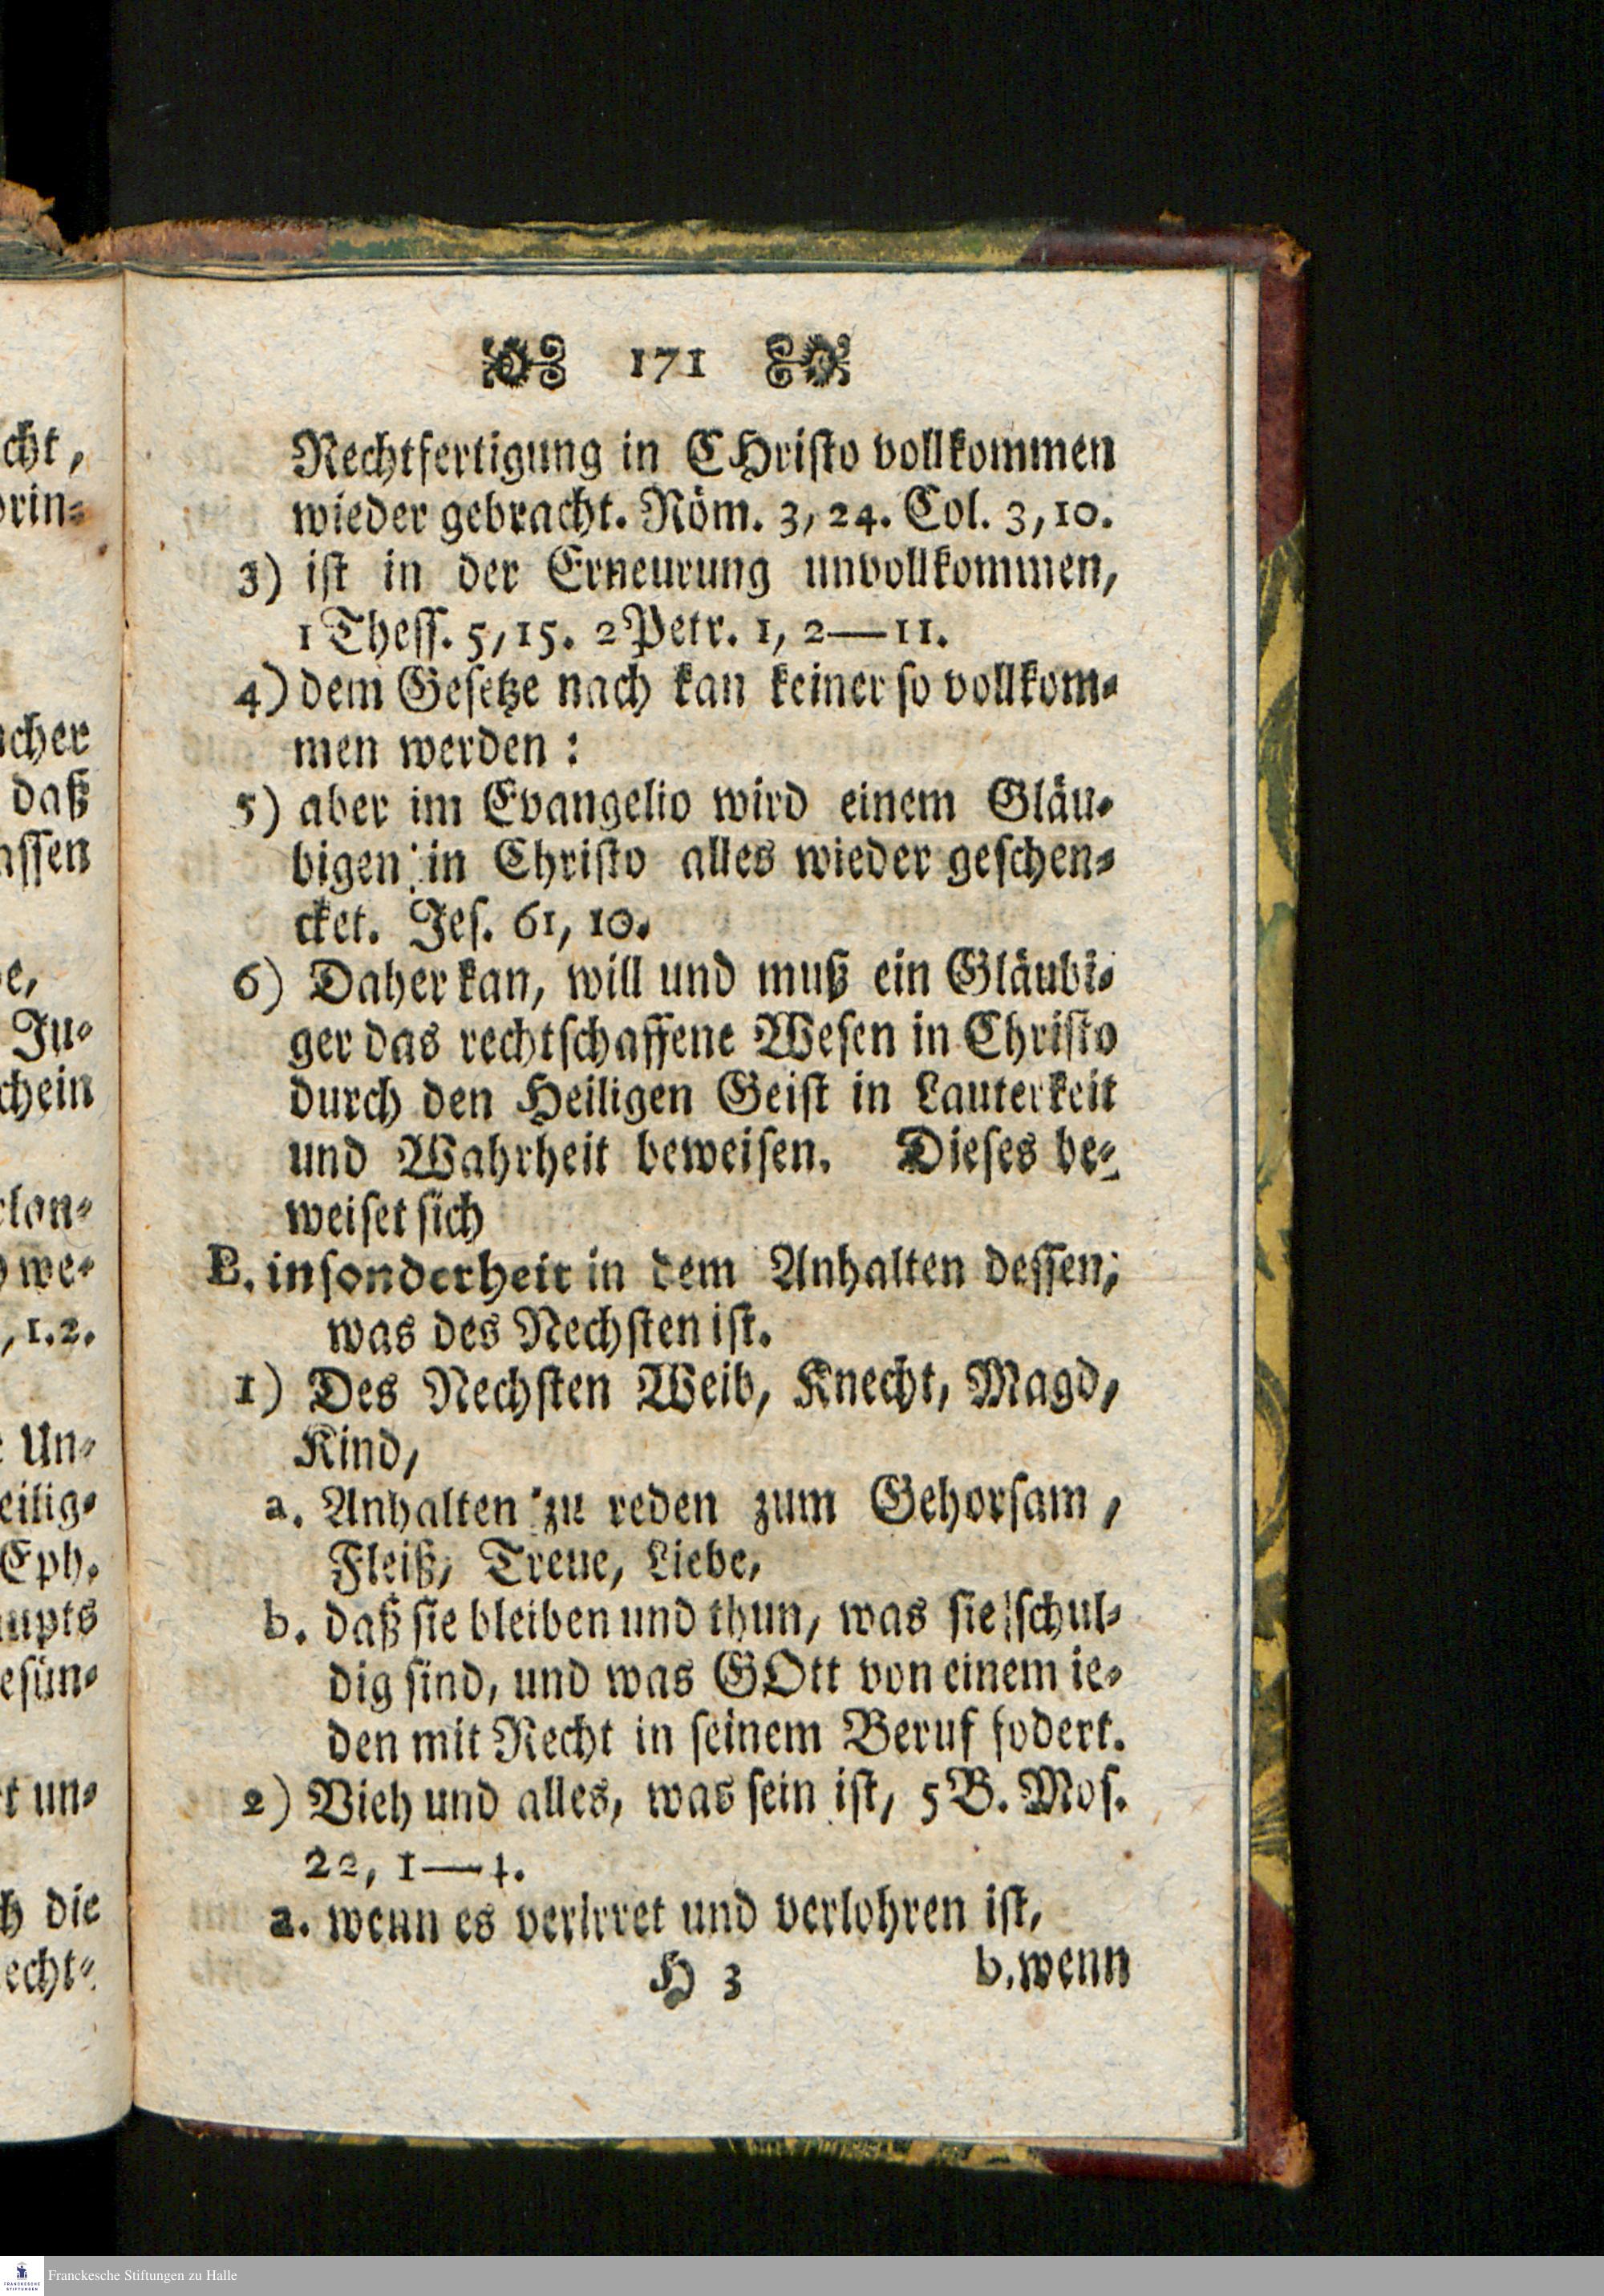 171
Rechtfertigung in CHristo vollkommen
wieder gebracht. Röm. 3, 24. Col. 3, 10.
3) ist in der Erneurung unvollkommen,
1 Thess. 5, 15. 2 Petr. 1, 2—11.
4) dem Gesetze nach kan keiner so vollkom-
men werden:
5) aber im Evangelio wird einem Gläu-
bigen in Christo alles wieder geschen-
cket. Jes. 61, 10.
6) Daher kan, will und muß ein Gläubi-
ger das rechtschaffene Wesen in Christo
durch den Heiligen Geist in Lauterkeit
und Wahrheit beweisen. Dieses be-
weiset sich
B. insonderheit in dem Anhalten dessen,
was des Nechsten ist.
1) Des Nechsten Weib, Knecht, Magd,
Kind,
a. Anhalten zu reden zum Gehorsam,
Fleiß, Treue, Liebe,
b. daß sie bleiben und thun, was sie schul-
dig sind, und was GOtt von einem ie-
den mit Recht in seinem Beruf fodert.
2) Vieh und alles, was sein ist, 5 B. Mos.
22, 1—4.
a. wenn es verirret und verlohren ist,
H 3 b. wenn
cht,
rin-
cher
daß
assen
e,
Ju-
chein
lan-
we-
, 1. 2.
Un-
eilig-
Eph.
upts
esün-
t un-
h die
echt-
Franckesche Stiftungen zu Halle
FRANCKESCHE
STIFTUNGEN